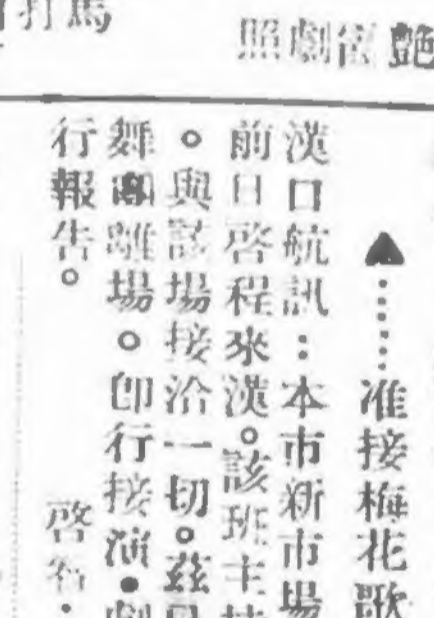 馬
打
艷
劇照
▲……准接梅花歌
漢口航訊：本市新市場
前日啓程來漢。該班主
。與該場接洽一切。茲
舞團離場。卽行接演．劇
行報告。 啓